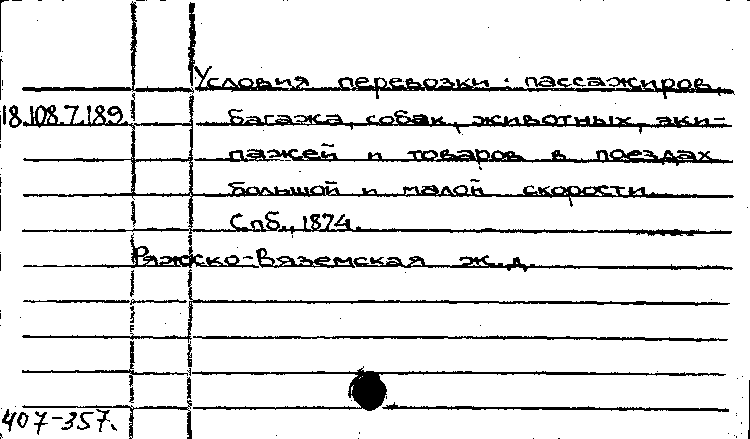 Условия перевозки: пассажиров,
18.108.7.189. багажа, собак, животных, эки-
пажей и товаров в поездах
большой и малой скорости.
Спб., 1874.
Ряжско-Вяземская ж.д.
407-357.